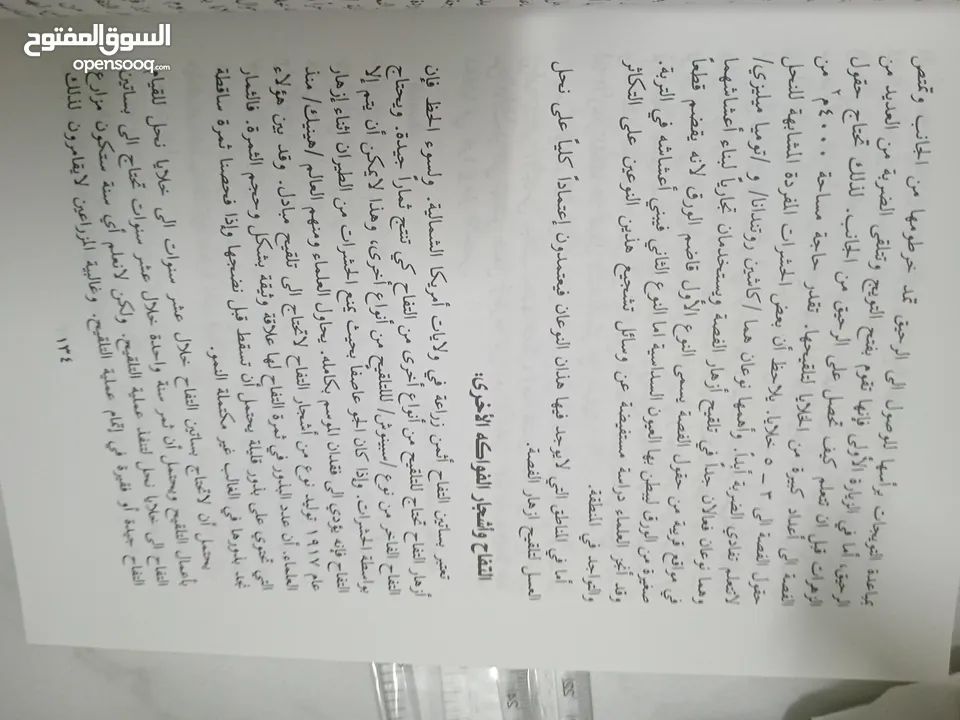 السوق المفتوح
opensooq.com
بمباعدة التويجات برأسها للوصول الى الرحيق تمد خرطومها من الجانب وتمتص
الرحيق، أما في الزيارة الأولى فإنها تقوم بفتح التويج وتتلقى الضربة من العديد من
الزهرات قبل ان تتعلم كيف تحصل على الرحيق من الجانب. لذلك تحتاج حقول
الفصة الى أعداد كبيرة من الخلايا لتلقيحها. تقدر حاجة مساحة ٤٠٠٠م٢ من
حقول الفصة الى ٣ – ٥ خلايا. يلاحظ أن بعض الحشرات المفردة المشابهة للنحل
لاتتعلم تفادي الضربة أبداً. وأهمها نوعان هما /كاشين روتندانا/ و /نوميا ميلنيري/
وهما نوعان فعالان جداً في تلقيح أزهار الفصة ويستخدمان تجارياً لبناء أعشاشهما
في مواقع قريبة من حقول الفصة يسمى النوع الأول قاضم الورق لانه يقضم قطعاً
صغيرة من الورق ليبطن بها العيون السداسية اما النوع الثاني فيبني أعشاشه في التربة.
وقد أنجز العلماء دراسة مستفيضة عن وسائل تشجيع هذين النوعين على التكاثر
والتواجد في المنطقة.
أما في المناطق التي لايوجد فيها هذان النوعان فيعتمدون إعتماداً كلياً على نحل
العسل لتلقيح ازهار الفصة.
التفاح وأشجار الفواكه الأخرى:
تعتبر بساتين التفاح أثمن زراعة في ولايات أمريكا الشمالية. ولسوء الحظ فإن
أزهار التفاح تحتاج للتلقيح من أنواع أخرى من التفاح كي تنتج ثماراً جيدة. ويحتاج
التفاح الفاخر من نوع /سينوش/ للتلقيح من أنواع أخرى، وهذا لايمكن أن يتم إلا
بواسطة الحشرات. وإذا كان الجو عاصفاً بحيث يمنع الحشرات من الطيران اثناء إزهار
التفاح فإنه يؤدي الى فقدان الموسم بكامله. يحاول العلماء ومنهم العالم /هينيك/ منذ
عام ١٩١٧ توليد نوع من أشجار التفاح لاتحتاج الى تلقيح مبادل. وقد بين هؤلاء
العلماء، أن عدد البذور في ثمرة التفاح لها علاقة وثيقة بشكل وحجم الثمرة. فالثمار
التي تحتوي على بذور قليلة يحتمل أن تسقط قبل نضجها وإذا فحصنا ثمرة ساقطة
نجد بذورها في الغالب غير مكتملة النمو.
يحتمل أن لاتحتاج بساتين التفاح خلال عشر سنوات الى خلايا نحل للقيام
بأعمال التلقيح ويحتمل أن تمر سنة واحدة خلال عشر سنوات تحتاج الى بساتين
التفاح الى خلايا نحل لتنفذ عملية التلقيح، ولكن لانعلم أي سنة ستكون مزارع
التفاح جيدة أو فقيرة في إتمام عملية التلقيح. وغالبية المزراعين لايقامرون لذلك
١٣٤